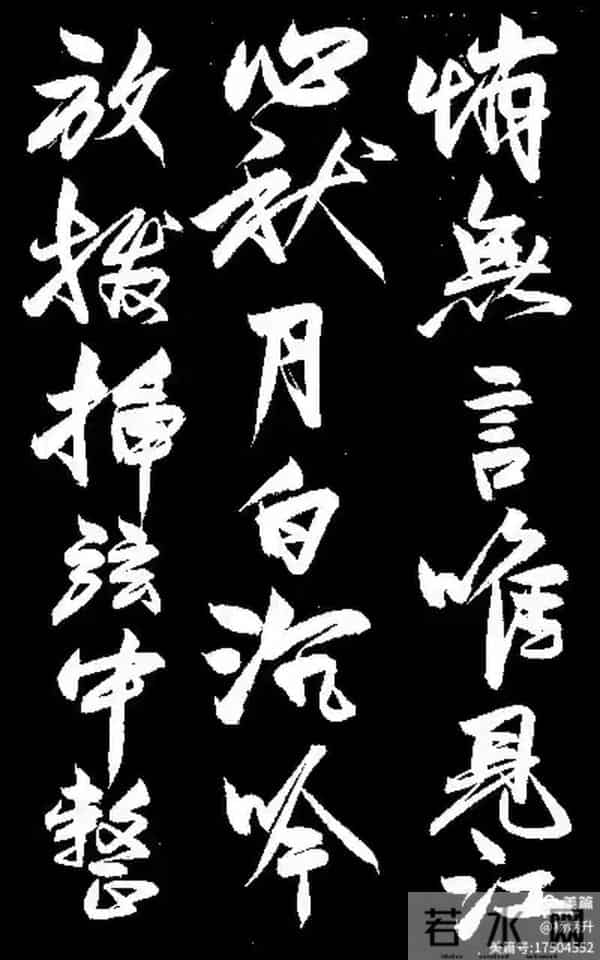 悄無言唯見江
心秋月白沉吟
放撥插弦中整
美篇
若水网
美篇号:17504552